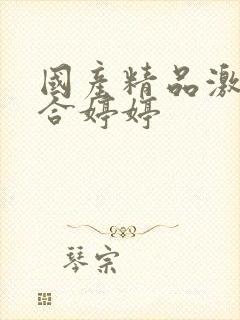 國產精品激
合婷婷
琴宗